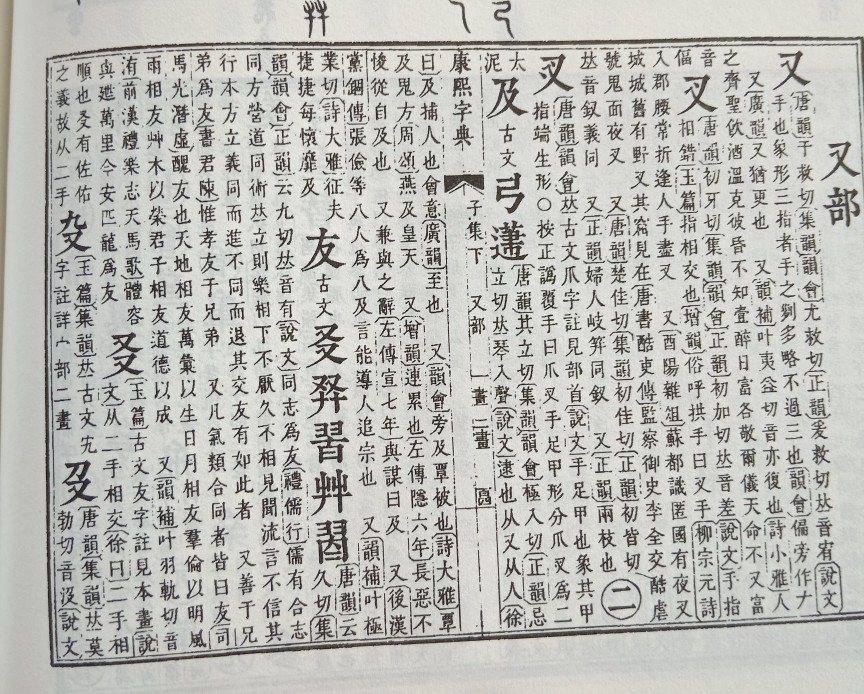 又部
又
唐韻于救切集韻韻會尤救切正韻爰救切𠀤音宥說文
手也象形三指者手之𠛱多略不過三也韻會偏旁作𠂇
又廣韻又猶更也 又韻補叶夷益切音亦復也詩小雅人
之齊聖飮酒溫克彼昏不知壹醉日富各敬爾儀天命不又富
音
偪
叉
唐韻初牙切集韻韻會正韻初加切𠀤音差說文手指
相錯玉篇指相交也增韻俗呼拱手曰叉手柳宗元詩
入郡腰常折逢人手盡叉 又酉陽雜俎蘇都識匿國有夜叉
城城舊有野叉其窟見在唐書酷吏傳監察御史李全交酷虐
號鬼面夜叉 又唐韻楚佳切集韻初佳切正韻初皆切
𠀤音釵義同 又正韻婦人岐笄同釵 又正韻兩枝也
二
㕚
唐韻韻會𠀤古文爪字註見部首說文手足甲也象其甲
指端生形○按正譌覆手曰爪叉手足甲形分爪叉爲二
太
泥
及
古文
弓
唐韻其立切集韻韻會極入切正韻忌
立切𠀤琴入聲說文逮也从又从人徐
康熙字典
子集下 又部 一畫 二畫
曰及捕人也會意廣韻至也 又韻會旁及覃被也詩大雅覃
及鬼方周頌燕及皇天 又增韻連累也左傳隱六年長惡不
悛從自及也 又兼與之辭左傳宣七年與謀曰及 又後漢
黨錮傳張儉等八人爲八及言能導人追宗也 又韻補叶極
業切詩大雅征夫
捷捷每懷靡及
友
古文
㕛
唐韻云
久切集
韻韻會正韻云九切𠀤音有說文同志爲友禮儒行儒有合志
同方營道同術𠀤立則樂相下不厭久不相見聞流言不信其
行本方立義同而進不同而退其交友有如此者 又善于兄
弟爲友書君陳惟孝友于兄弟 又凡氣類合同者皆曰友司
馬光潛虛醜友也天地相友萬彙以生日月相友羣倫以明風
雨相友艸木以榮君子相友道德以成 又韻補叶羽軌切音
洧前漢禮樂志天馬歌體容
與迣萬里今安匹龍爲友
㕛
玉篇古文友字註見本畫說
文从二手相交徐曰二手相
順也㕛有佐佑
之義故从二手
玉篇集韻𠀤古文宄
字註詳宀部二畫
𠬛
唐韻集韻𠀤莫
勃切音沒說文